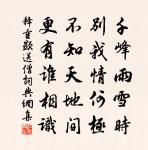 千峰雨雪時
別我情何極
不知天地間
更有誰相識
釋重顯送僧詞典網集